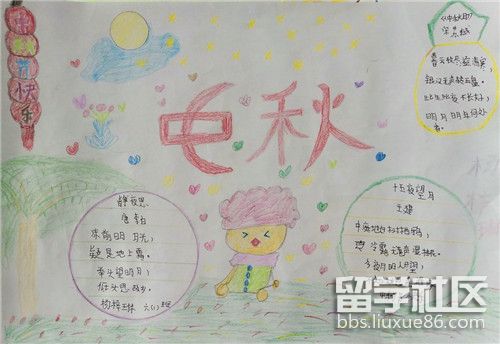 中秋节快乐
中秋
《中秋月》
宋 苏轼
暮云收尽溢清寒，
银汉无声转玉盘。
此生此夜不长好，
明月明年何处
看。
静夜思
唐 李白
床前明月光，
疑是地上霜。
举头望明月，
低头思故乡。
六(1)班
十五夜望月
王建
中庭地白树栖鸦，
冷露无声湿桂花。
今夜月明人尽望，
留学社区
bbs.liuxue86.com